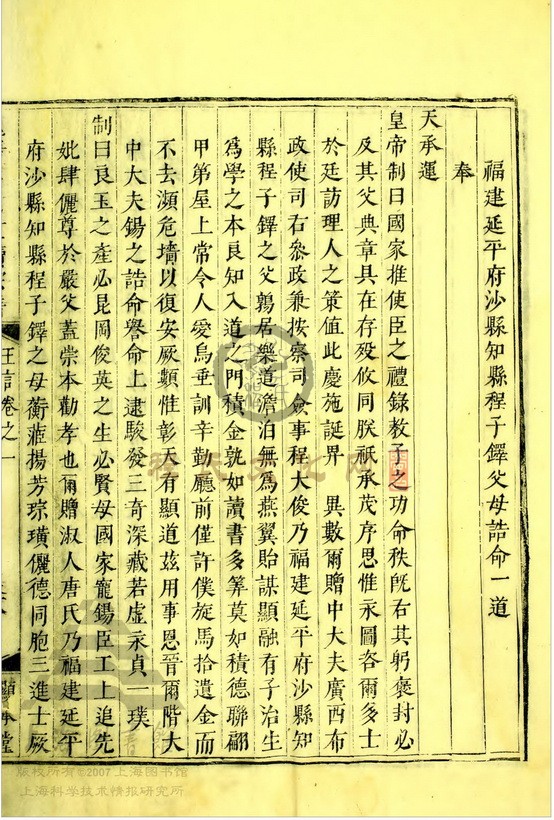 福建延平府沙縣知縣程子鐸父母誥命一道
奉
天承運
皇帝制曰國家推使臣之禮錄教子之功命秩既右其躬褒封必
及其父典章具在存殁攸同朕祇承茂序思惟永圖咨爾多士
於廷訪理人之策值此慶施誕畀 異數爾贈中大夫廣西布
政使司右叅政兼按察司僉事程大俊乃福建延平府沙縣知
縣程子鐸之父鶉居樂道澹泊無爲燕翼貽謀顯融有子治生
爲學之本良知入道之門積金孰如讀書多筭莫如積德聯翩
甲第屋上常令人愛烏垂訓辛勤廳前僅許僕旋馬拾遺金而
不去瀕危墻以復安厥纇惟彰天有顯道茲用事恩晉爾階大
中大夫錫之誥命譽命上逮駿發三奇深藏若虛永貞一璞
制曰良玉之產必昆岡俊英之生必賢母國家寵錫臣工上追先
妣肆儷尊於嚴父蓋崇本勸孝也爾贈淑人唐氏乃福建延平
府沙縣知縣程子鐸之母蘅蒞揚芳琮璜儷德同胞三進士厥
王言卷之一
版权所有©2007上海图书馆
上海科学技术情报研究所